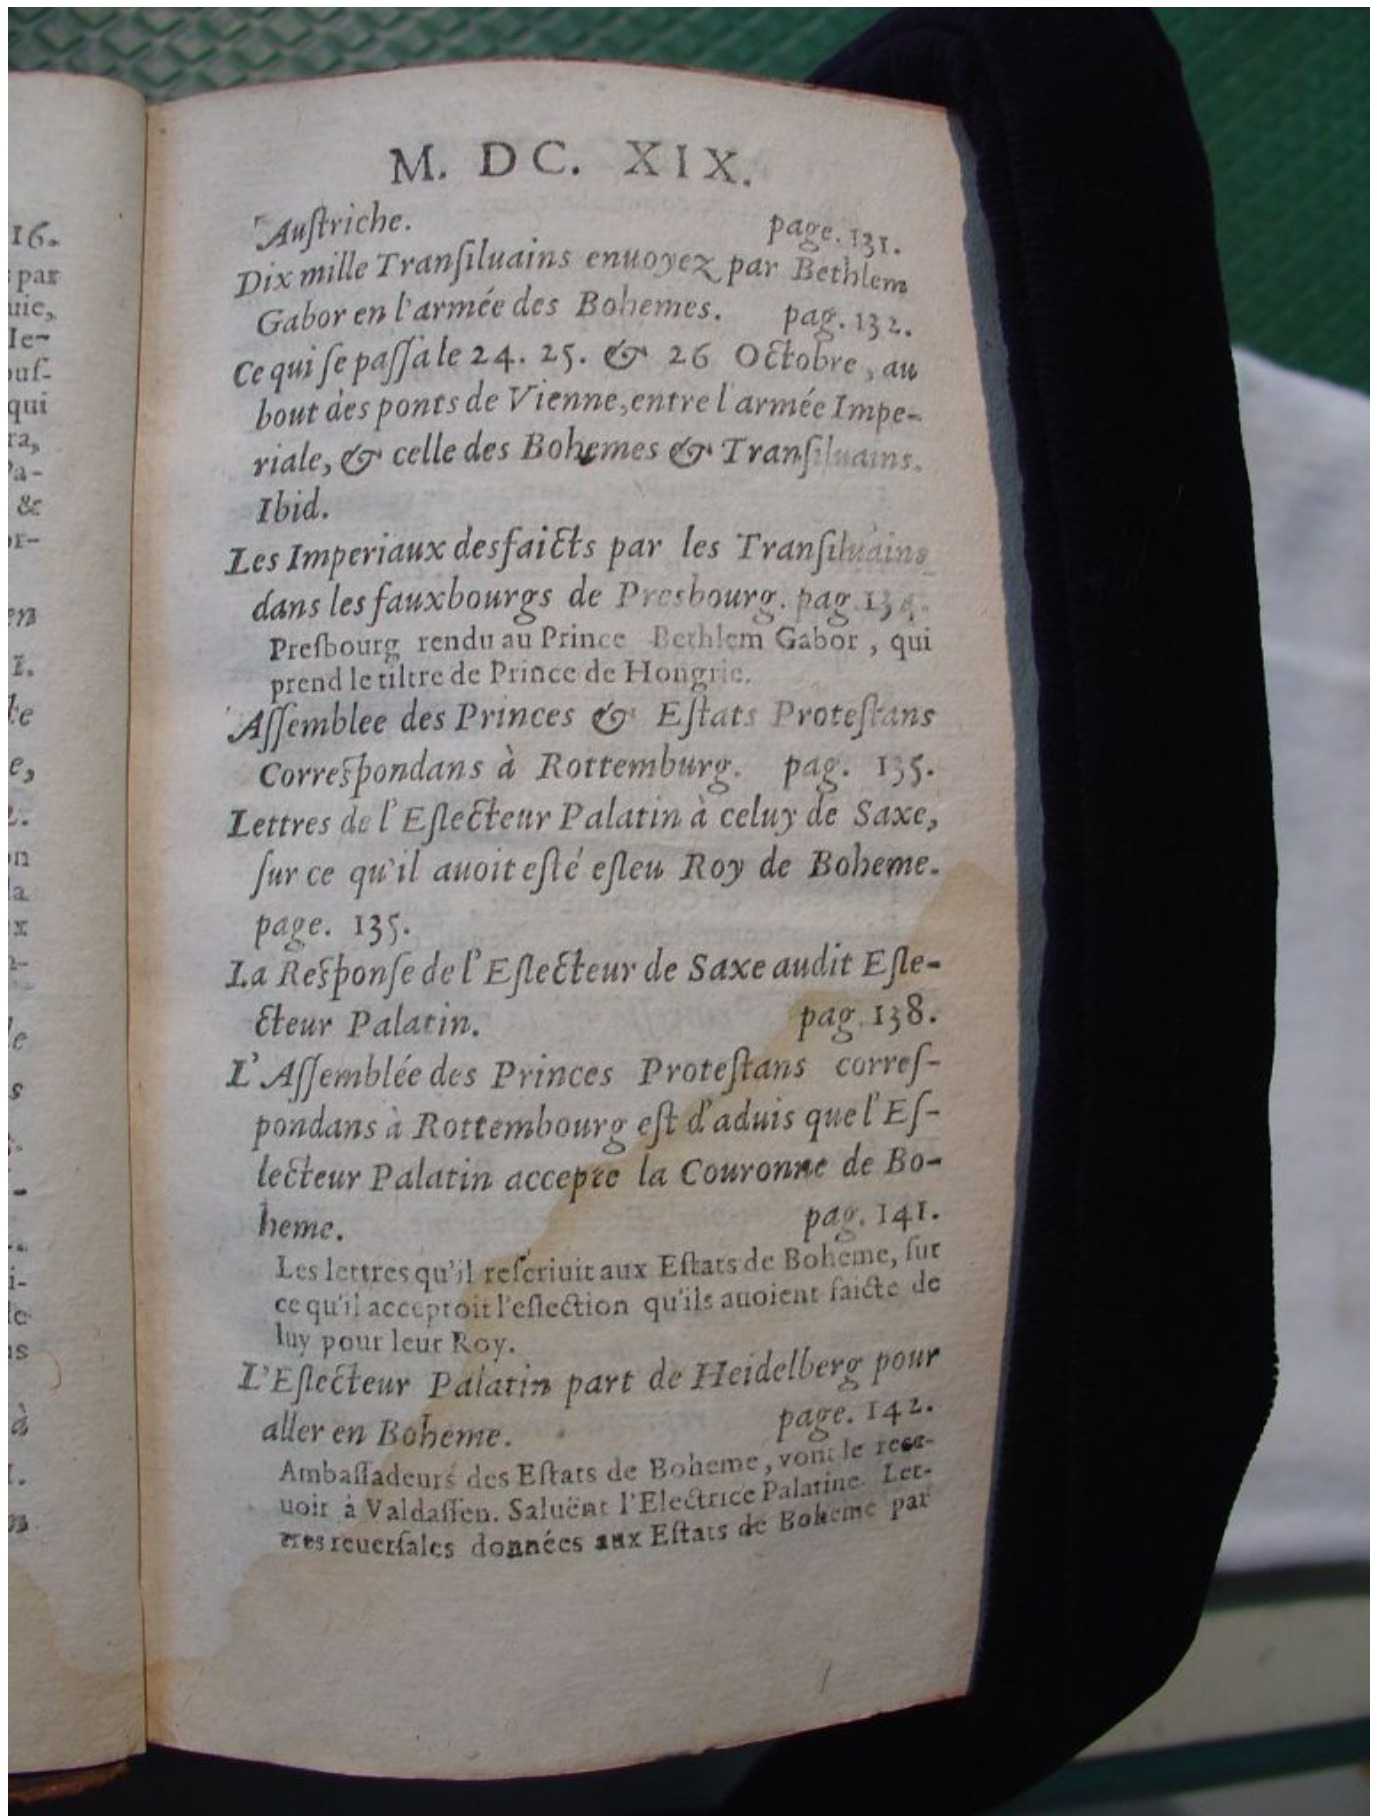 M. DC. XIX.
Auſtriche. page. 131.
Dix mille Tranſiluains enuoyez par Bethlem
Gabor en l'armée des Bohemes. pag. 132.
Ce qui ſe paſſa le 24. 25. & 26 Octobre, au
bout des ponts de Vienne, entre l'armée Impe-
riale, & celle des Bohemes & Tranſiluains.
Ibid.
Les Imperiaux desfaicts par les Tranſiluains
dans les fauxbourgs de Presbourg. pag 134.
Preſbourg rendu au Prince Bethlem Gabor, qui
prend le tiltre de Prince de Hongrie.
Aſſemblee des Princes & Eſtats Proteſtans
Correſpondans à Rottemburg. pag. 135.
Lettres de l'Eſlecteur Palatin à celuy de Saxe,
ſur ce qu'il auoit eſté eſleu Roy de Boheme.
page. 135.
La Reſponſe de l'Eſlecteur de Saxe audit Eſle-
cteur Palatin. pag. 138.
L'Aſſemblée des Princes Proteſtans correſ-
pondans à Rottembourg eſt d'aduis que l'Eſ-
lecteur Palatin accepte la Couronne de Bo-
heme. pag. 141.
Les lettres qu'il reſcriuit aux Eſtats de Boheme, ſur
ce qu'il acceptoit l'eſlection qu'ils auoient faicte de
luy pour leur Roy.
L'Eſlecteur Palatin part de Heidelberg pour
aller en Boheme. page. 142.
Ambaſſadeurs des Eſtats de Boheme, vont le rece-
uoir à Valdaſſen. Saluënt l'Electrice Palatine. Let-
tres reuerſales données aux Eſtats de Boheme par
16.
par
uie,
Ie-
ouſ-
qui
ra,
Pa-
&
or-
en
I.